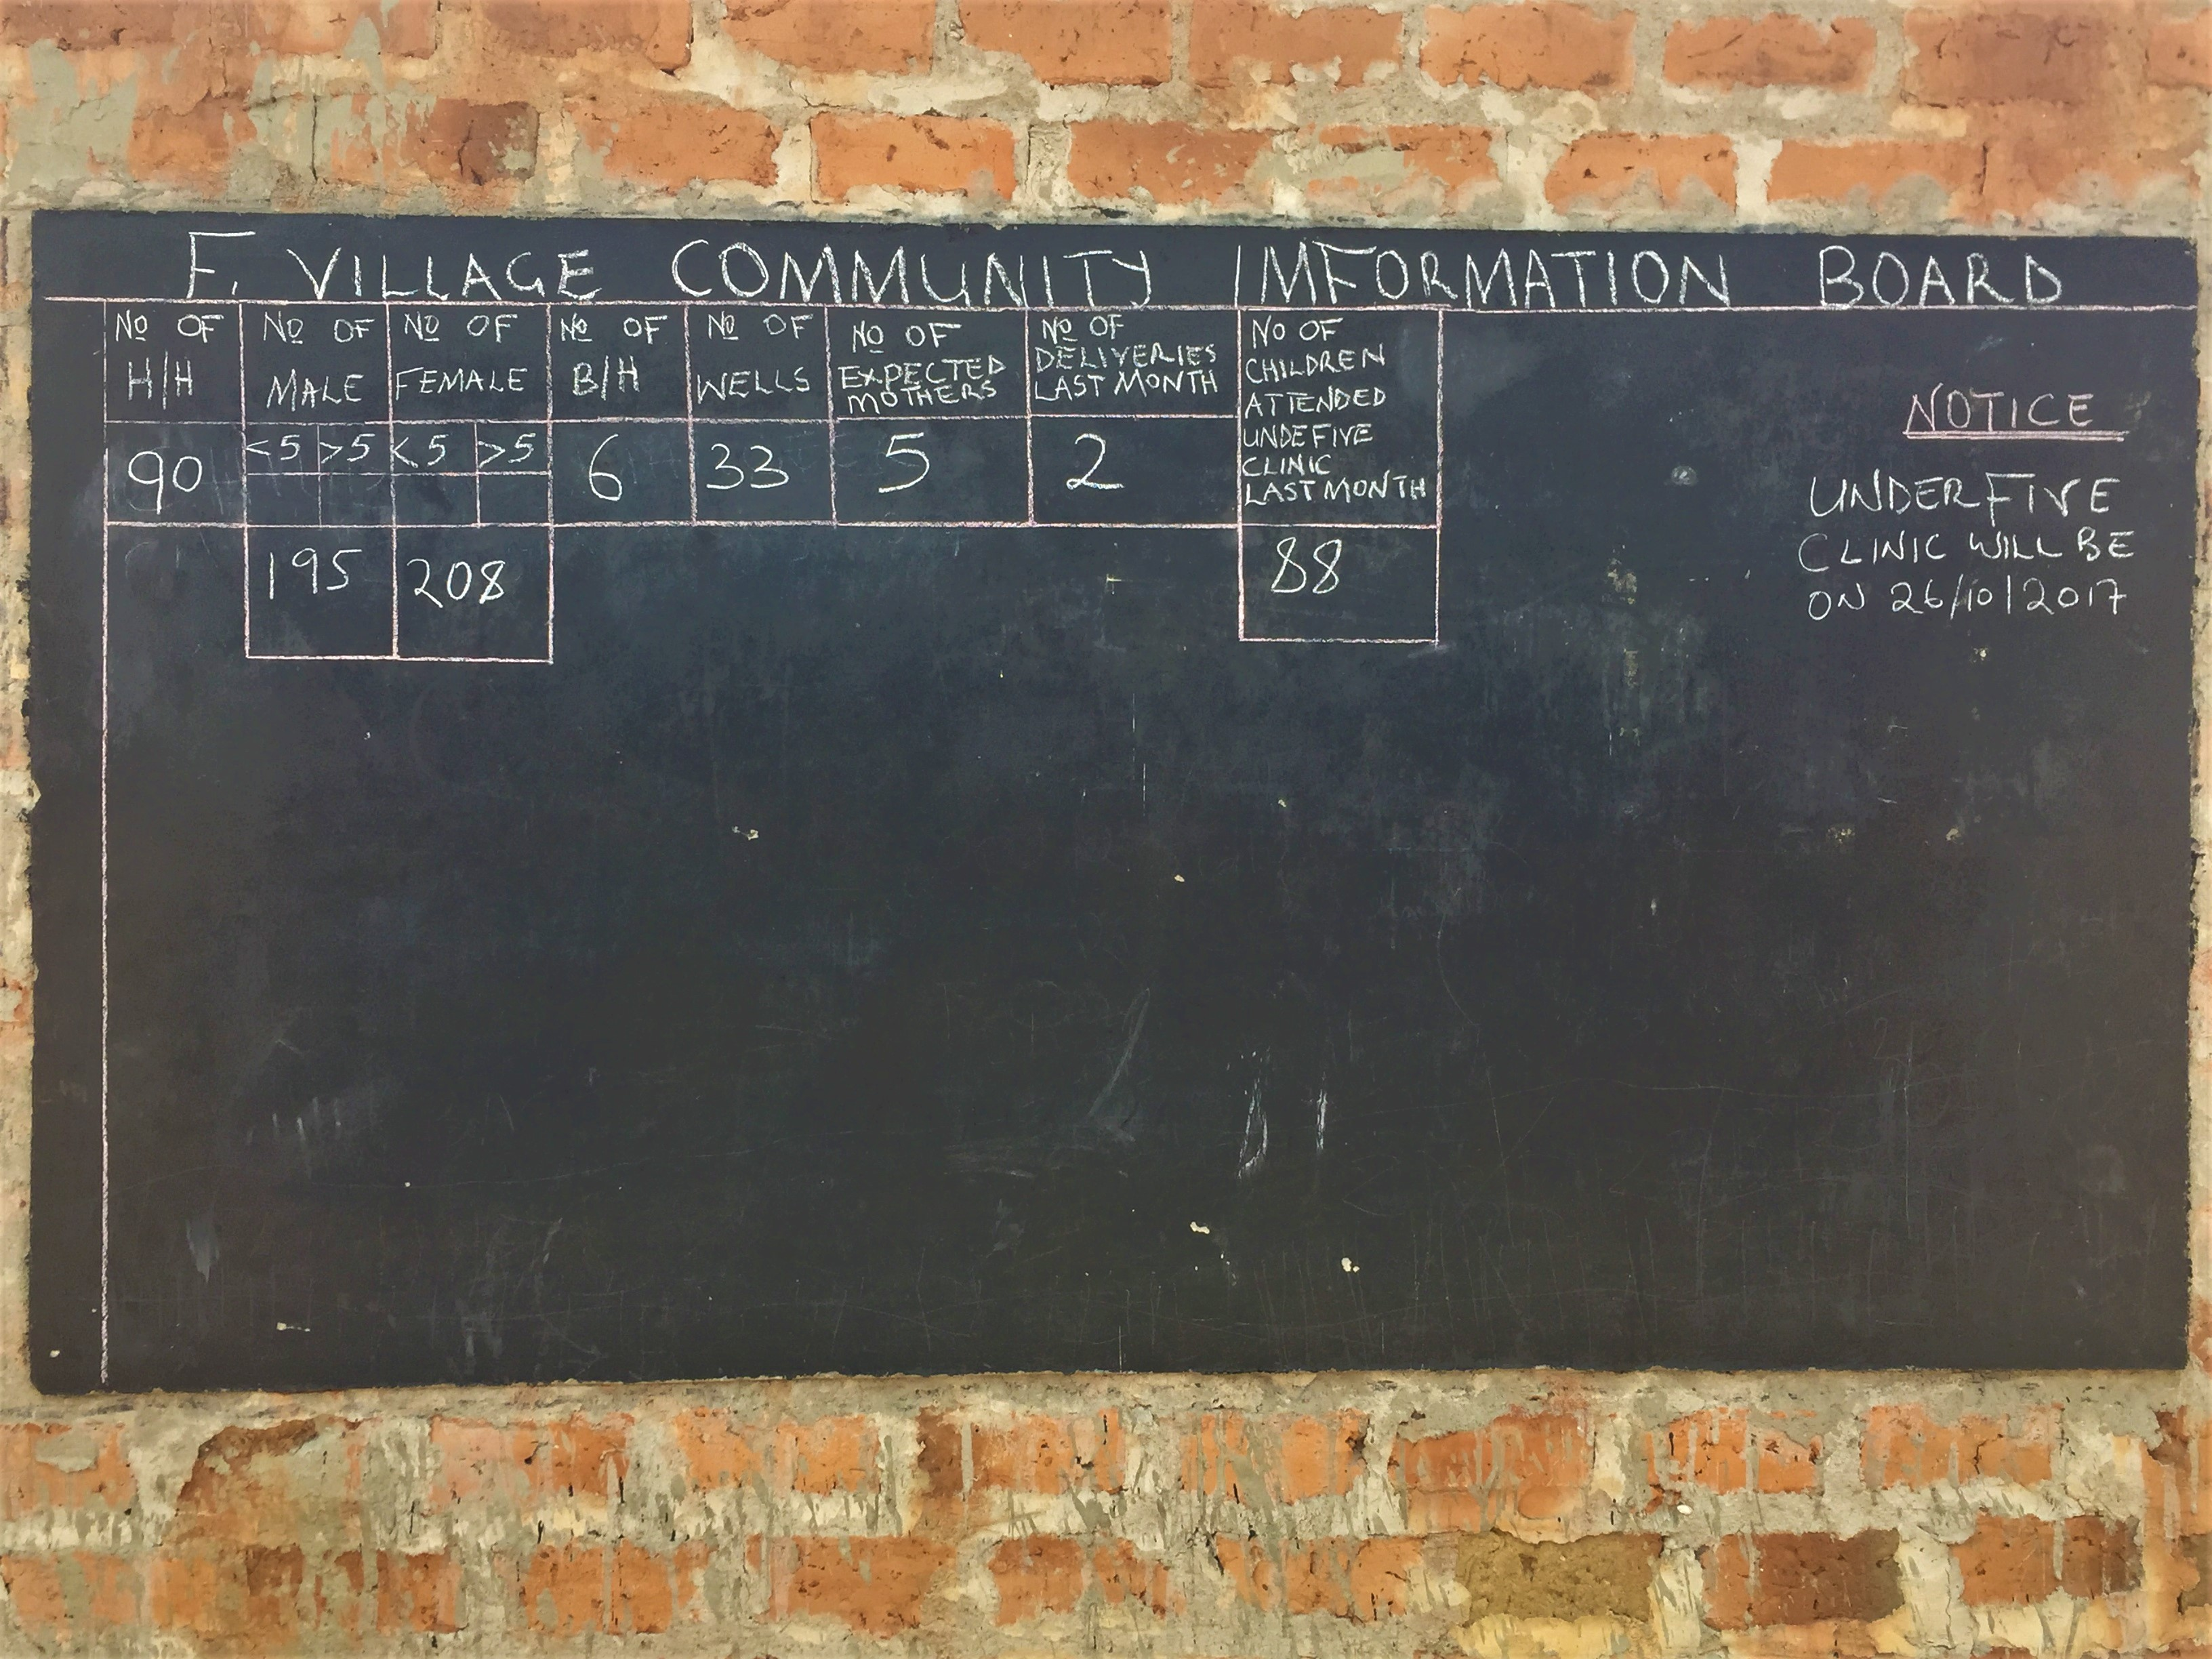 F. VILLAGE COMMUNITY IMFORMATION BOARD
No OF H/H
No OF MALE
No OF FEMALE
No OF B/H
No OF WELLS
No OF EXPECTED MOTHERS
No OF DELIVERIES LAST MONTH
No OF CHILDREN ATTENDED UNDEFIVE CLINIC LAST MONTH
90
<5 >5 <5 >5
6
33
5
2
195
208
88
NOTICE
UNDERFIVE
CLINIC WILL BE
ON 26/10/2017